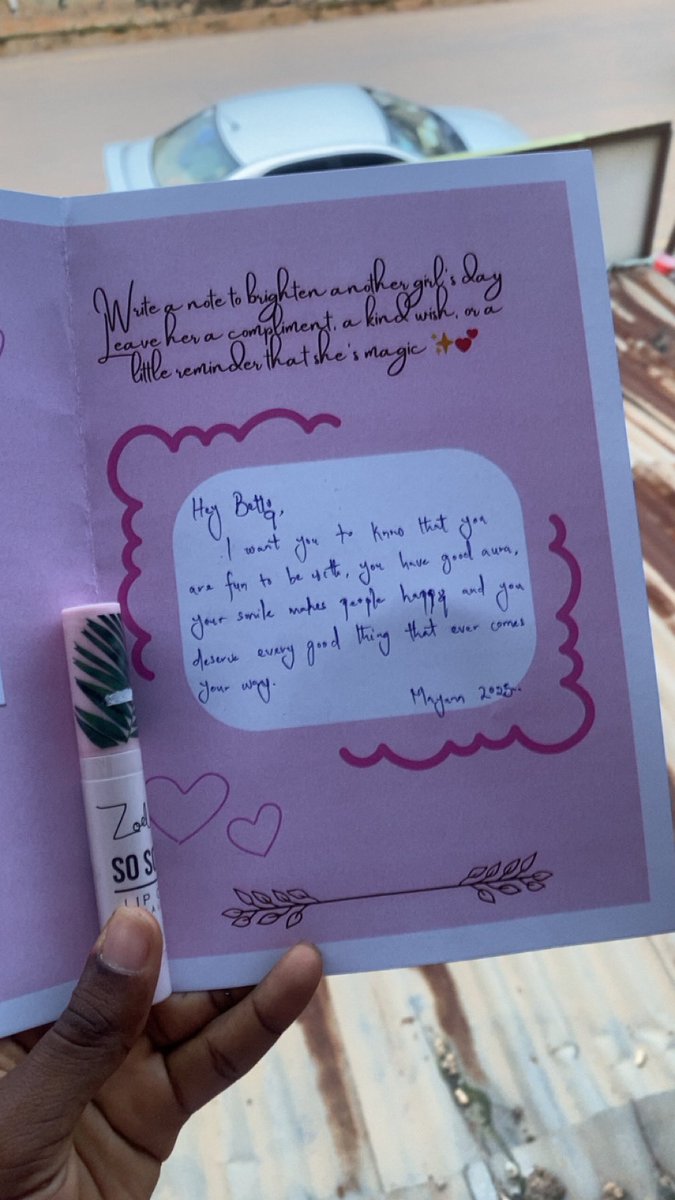 Write a note to brighten another girl's day
Leave her a compliment, a kind wish, or a
little reminder that she's magic ✨💕
Hey Betty,
I want you to know that you
are fun to be with, you have good aura,
your smile makes people happy and you
deserve every good thing that ever comes
your way.
Maryann 2025.
SO
LIP